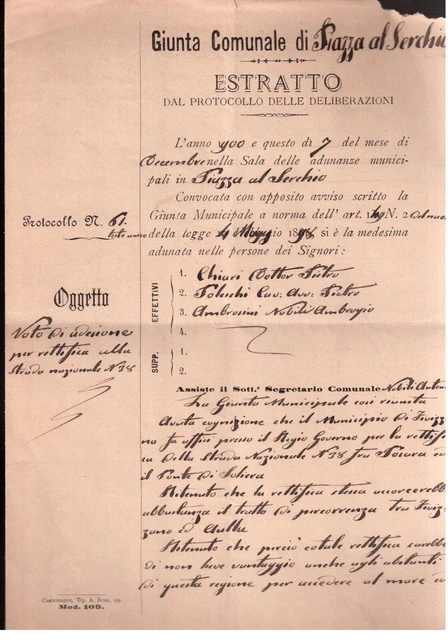 Giunta Comunale di Piazza al Serchio
ESTRATTO
DAL PROTOCOLLO DELLE DELIBERAZIONI
L'anno 900 e questo dì 7 del mese di
Decembre nella Sala delle adunanze munici-
pali in Piazza al Serchio
Convocata con apposito avviso scritto la
Giunta Municipale a norma dell' art. N. 2
della legge 4 Maggio 1898 si è la medesima
adunata nelle persone dei Signori:
Protocollo N. 61
EFFETTIVI
1. Chiari Dottor Pietro
2. Cav. Avv. Pietro
3. Ambrosini Nobili Ambrogio
4.
SUPP.
1.
2.
Oggetto
Voto di adesione
per rettifica alla
strada nazionale N 38
Assiste il Sott.º Segretario Comunale Nobili
La Giunta Municipale così riunita
Avuta cognizione che il Municipio di Fivizza
no fa uffici presso il Regio Governo per la rettifi
ca della Strada Nazionale N 38 fra e
il Ponte di Soliera
Ritenuto che la rettifica stessa accorcerebbe
abbastanza il tratto di percorrenza tra Fiviz
zano ed Aulla
Ritenuto che perciò cotale rettifica sarebbe
di non lieve vantaggio anche agli abitanti
di questa regione per accedere al mare e
Mod. 109.